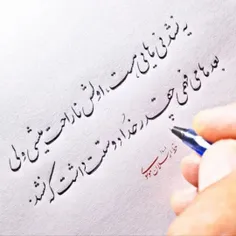 یه نشدنی‌هایی هست، اولش ناراحت میشی ولی
بعدها می‌فهمی چقدر خدا دوستت داشت که نشد.